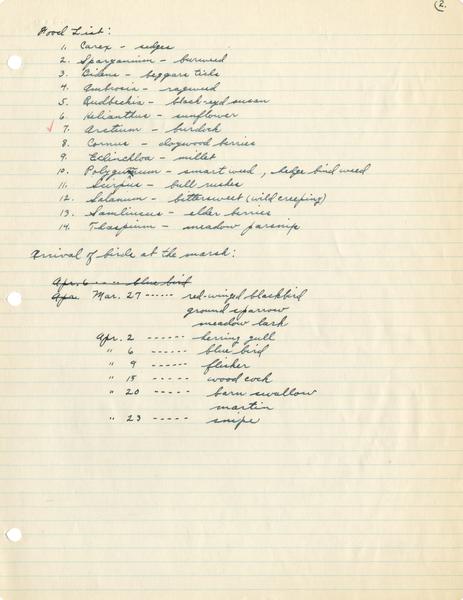 2.
Food List:
1. Carex - sedges
2. Sparganium - burweed
3. Bidens - beggars ticks
4. Ambrosia - ragweed
5. Rudbeckia - black-eyed susan
6. Helianthus - sunflower
7. Arctium - burdock
8. Cornus - dogwood berries
9. Echinchloa - millet
10. Polygonum - smart weed, hedge bind weed
11. Scirpus - bull rushes
12. Solanum - bittersweet (wild creeping)
13. Samlincus - elder berries
14. Thaspium - meadow parsnip
Arrival of birds at the marsh:
Apr. 6 ---- blue bird
Apr. Mar. 27 ------ red-winged blackbird
ground sparrow
meadow lark
Apr. 2 ------ herring gull
" 6 ------ blue bird
" 9 ------ flicker
" 15 ------ wood cock
" 20 ------ barn swallow
martin
" 23 ------ snipe